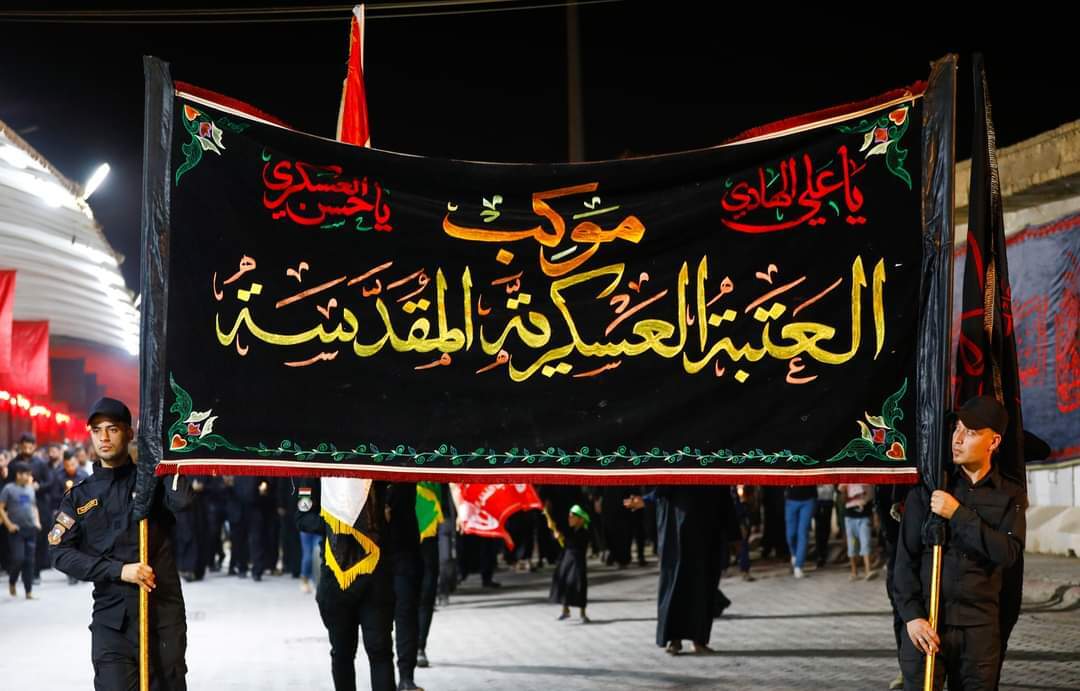 يا علي الهادي
يا حسن العسكري
موكب
العتبة العسكرية المقدسة